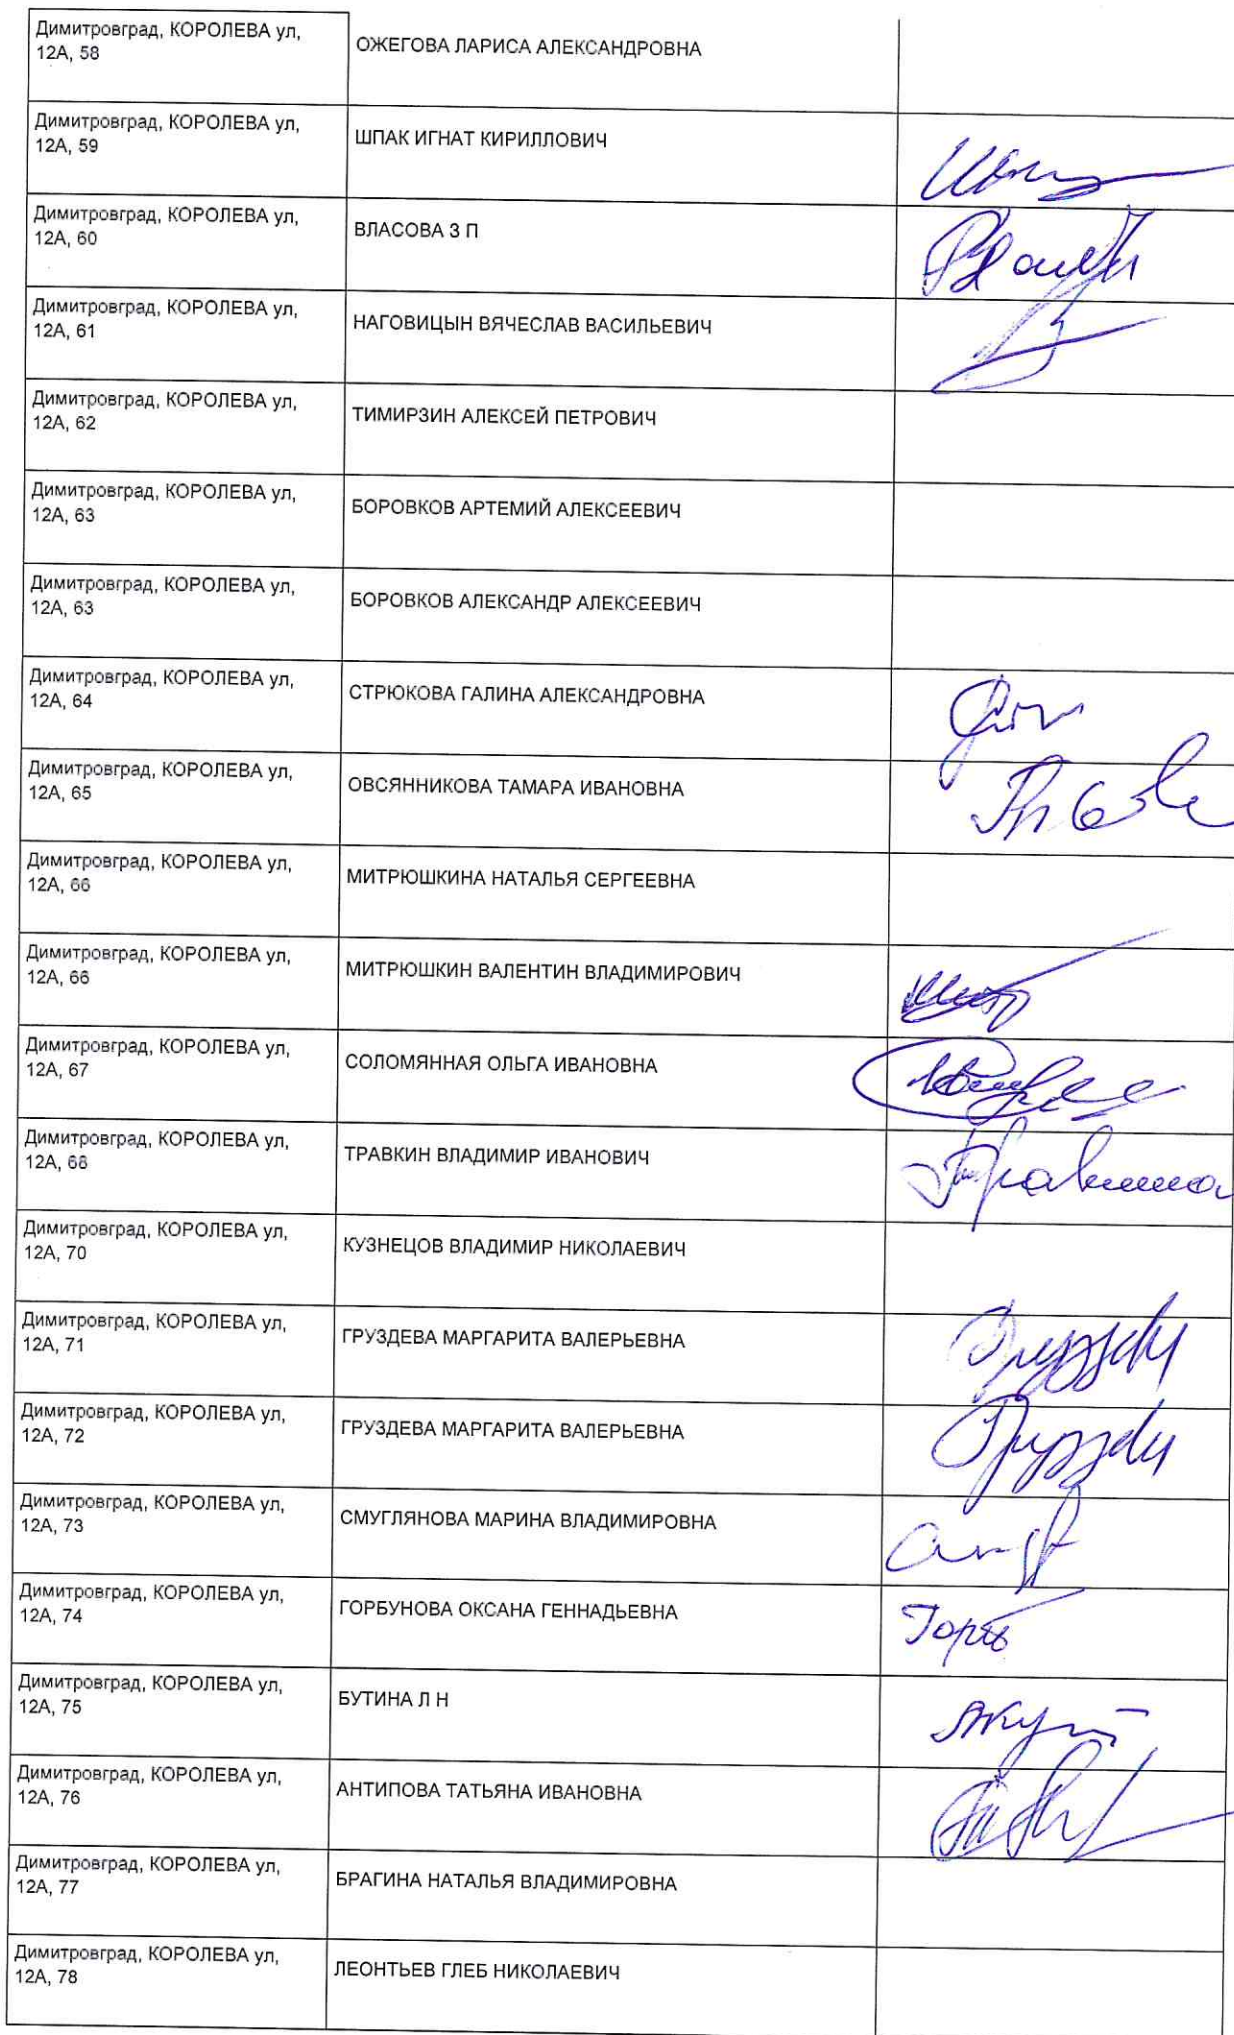 Димитровград, КОРОЛЕВА ул,
12А, 58
ОЖЕГОВА ЛАРИСА АЛЕКСАНДРОВНА
Димитровград, КОРОЛЕВА ул,
12А, 59
ШПАК ИГНАТ КИРИЛЛОВИЧ
Димитровград, КОРОЛЕВА ул,
12А, 60
ВЛАСОВА З П
Димитровград, КОРОЛЕВА ул,
12А, 61
НАГОВИЦЫН ВЯЧЕСЛАВ ВАСИЛЬЕВИЧ
Димитровград, КОРОЛЕВА ул,
12А, 62
ТИМИРЗИН АЛЕКСЕЙ ПЕТРОВИЧ
Димитровград, КОРОЛЕВА ул,
12А, 63
БОРОВКОВ АРТЕМИЙ АЛЕКСЕЕВИЧ
Димитровград, КОРОЛЕВА ул,
12А, 63
БОРОВКОВ АЛЕКСАНДР АЛЕКСЕЕВИЧ
Димитровград, КОРОЛЕВА ул,
12А, 64
СТРЮКОВА ГАЛИНА АЛЕКСАНДРОВНА
Димитровград, КОРОЛЕВА ул,
12А, 65
ОВСЯННИКОВА ТАМАРА ИВАНОВНА
Димитровград, КОРОЛЕВА ул,
12А, 66
МИТРЮШКИНА НАТАЛЬЯ СЕРГЕЕВНА
Димитровград, КОРОЛЕВА ул,
12А, 66
МИТРЮШКИН ВАЛЕНТИН ВЛАДИМИРОВИЧ
Димитровград, КОРОЛЕВА ул,
12А, 67
СОЛОМЯННАЯ ОЛЬГА ИВАНОВНА
Димитровград, КОРОЛЕВА ул,
12А, 68
ТРАВКИН ВЛАДИМИР ИВАНОВИЧ
Димитровград, КОРОЛЕВА ул,
12А, 70
КУЗНЕЦОВ ВЛАДИМИР НИКОЛАЕВИЧ
Димитровград, КОРОЛЕВА ул,
12А, 71
ГРУЗДЕВА МАРГАРИТА ВАЛЕРЬЕВНА
Димитровград, КОРОЛЕВА ул,
12А, 72
ГРУЗДЕВА МАРГАРИТА ВАЛЕРЬЕВНА
Димитровград, КОРОЛЕВА ул,
12А, 73
СМУГЛЯНОВА МАРИНА ВЛАДИМИРОВНА
Димитровград, КОРОЛЕВА ул,
12А, 74
ГОРБУНОВА ОКСАНА ГЕННАДЬЕВНА
Горб
Димитровград, КОРОЛЕВА ул,
12А, 75
БУТИНА Л Н
Димитровград, КОРОЛЕВА ул,
12А, 76
АНТИПОВА ТАТЬЯНА ИВАНОВНА
Димитровград, КОРОЛЕВА ул,
12А, 77
БРАГИНА НАТАЛЬЯ ВЛАДИМИРОВНА
Димитровград, КОРОЛЕВА ул,
12А, 78
ЛЕОНТЬЕВ ГЛЕБ НИКОЛАЕВИЧ